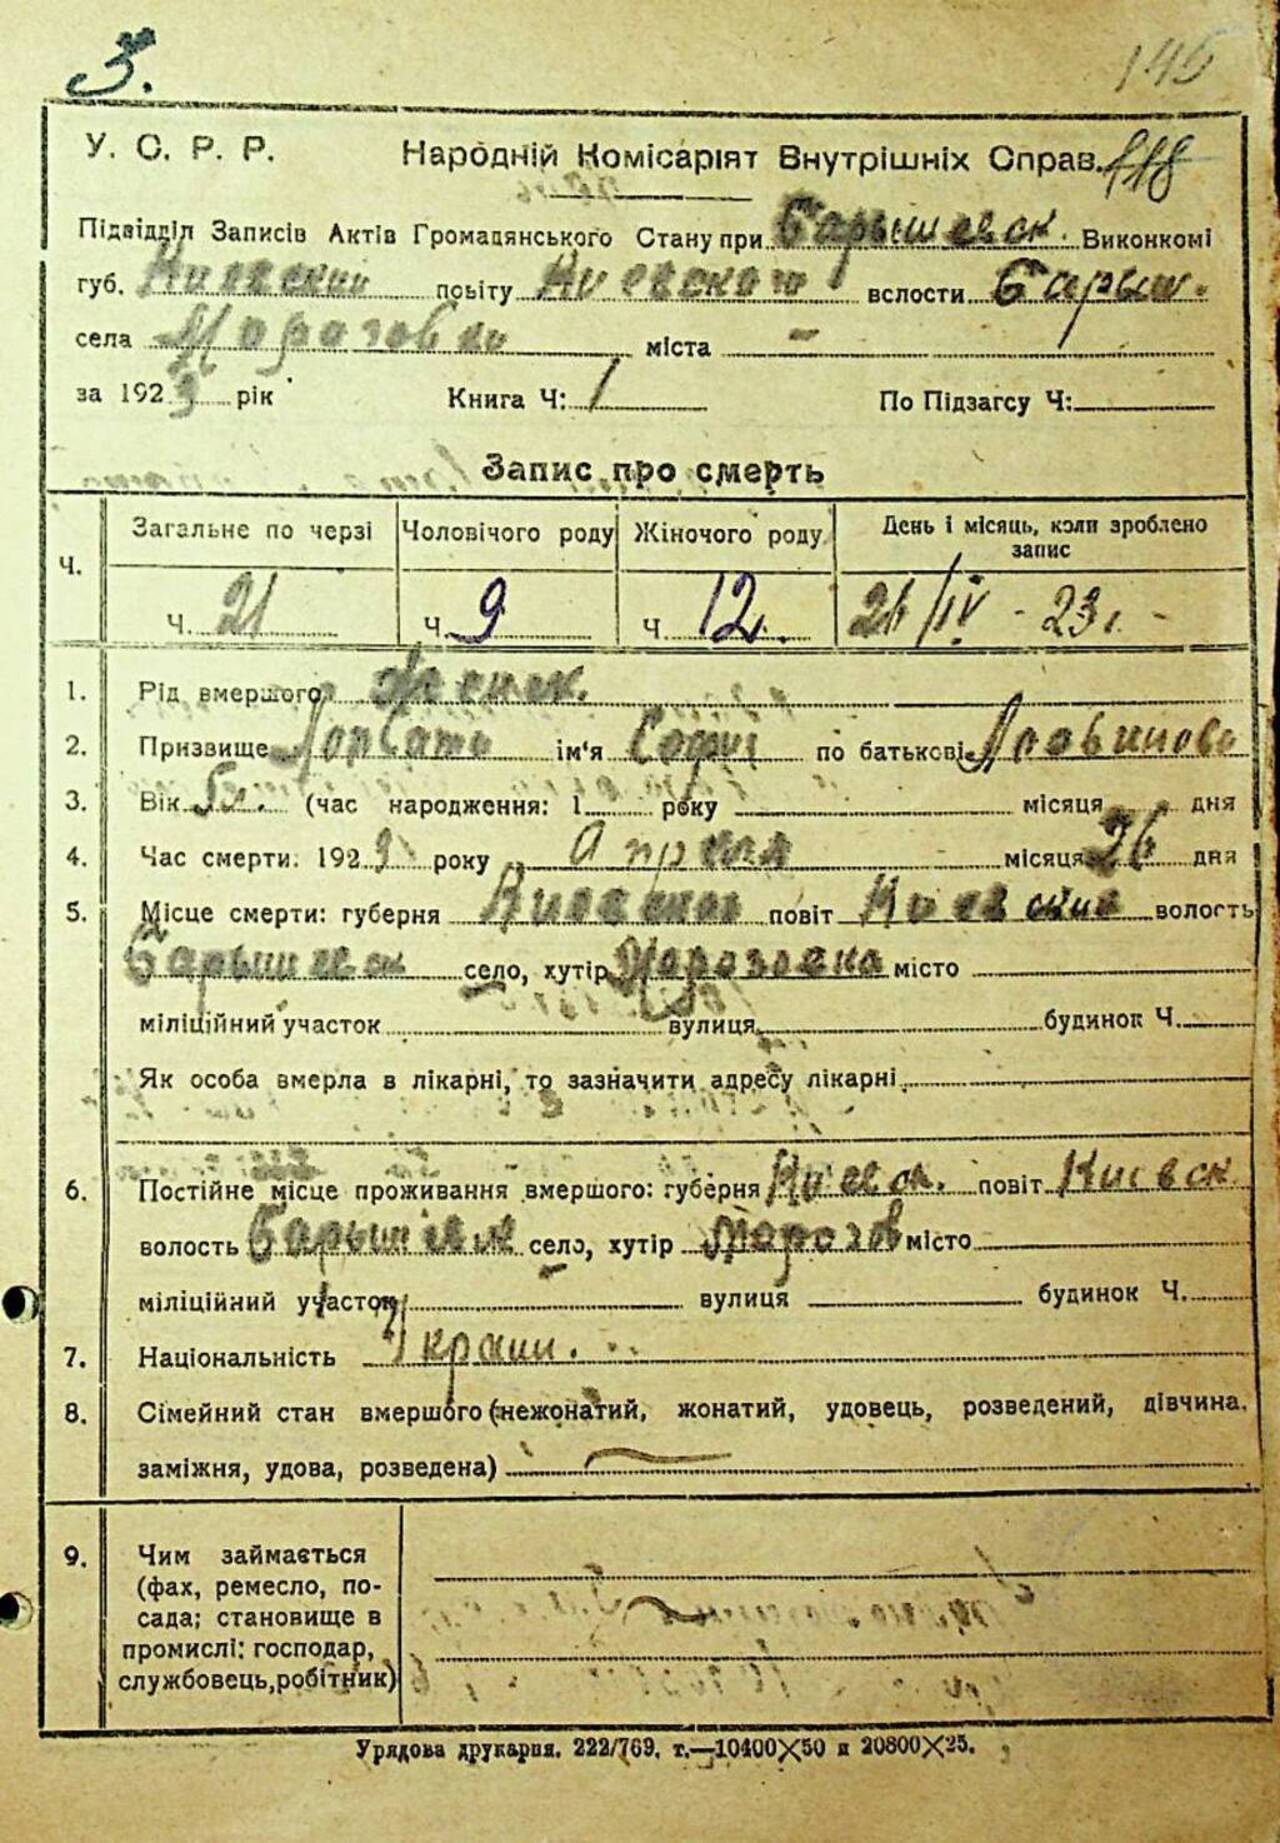 3.
145
118
У. С. Р. Р. Народній Комісаріят Внутрішніх Справ.
Підвідділ Записів Актів Громадянського Стану при Барышевск. Виконкомі
губ. Киевский повіту Киевского волости Барыш.
села Морозовки міста —
за 1923 рік Книга Ч: 1 По Підзагсу Ч:
Запис про смерть
Ч. Загальне по черзі Чоловічого роду Жіночого роду День і місяць, коли зроблено запис
Ч. 21 Ч. 9 Ч. 12. 26/IV - 23 г. -
1. Рід вмершого Женск.
2. Призвище ім'я София по батькові
3. Вік (час народження: 1 року місяця дня
4. Час смерти: 1923 року Апреля місяця 26 дня
5. Місце смерти: губерня Киевской повіт Киевский волость
Барышевск село, хутір Морозовка місто
міліційний участок вулиця будинок Ч.
Як особа вмерла в лікарні, то зазначити адресу лікарні
6. Постійне місце проживання вмершого: губерня Киевск. повіт Киевск
волость Барышевск село, хутір Морозов місто
міліційний участок вулиця будинок Ч.
7. Національність Украин.
8. Сімейний стан вмершого (нежонатий, жонатий, удовець, розведений, дівчина,
заміжня, удова, розведена) —
9. Чим займається
(фах, ремесло, по-
сада; становище в
промислі: господар,
службовець, робітник)
Урядова друкарня. 222/769. т.—10400×50 и 20800×25.